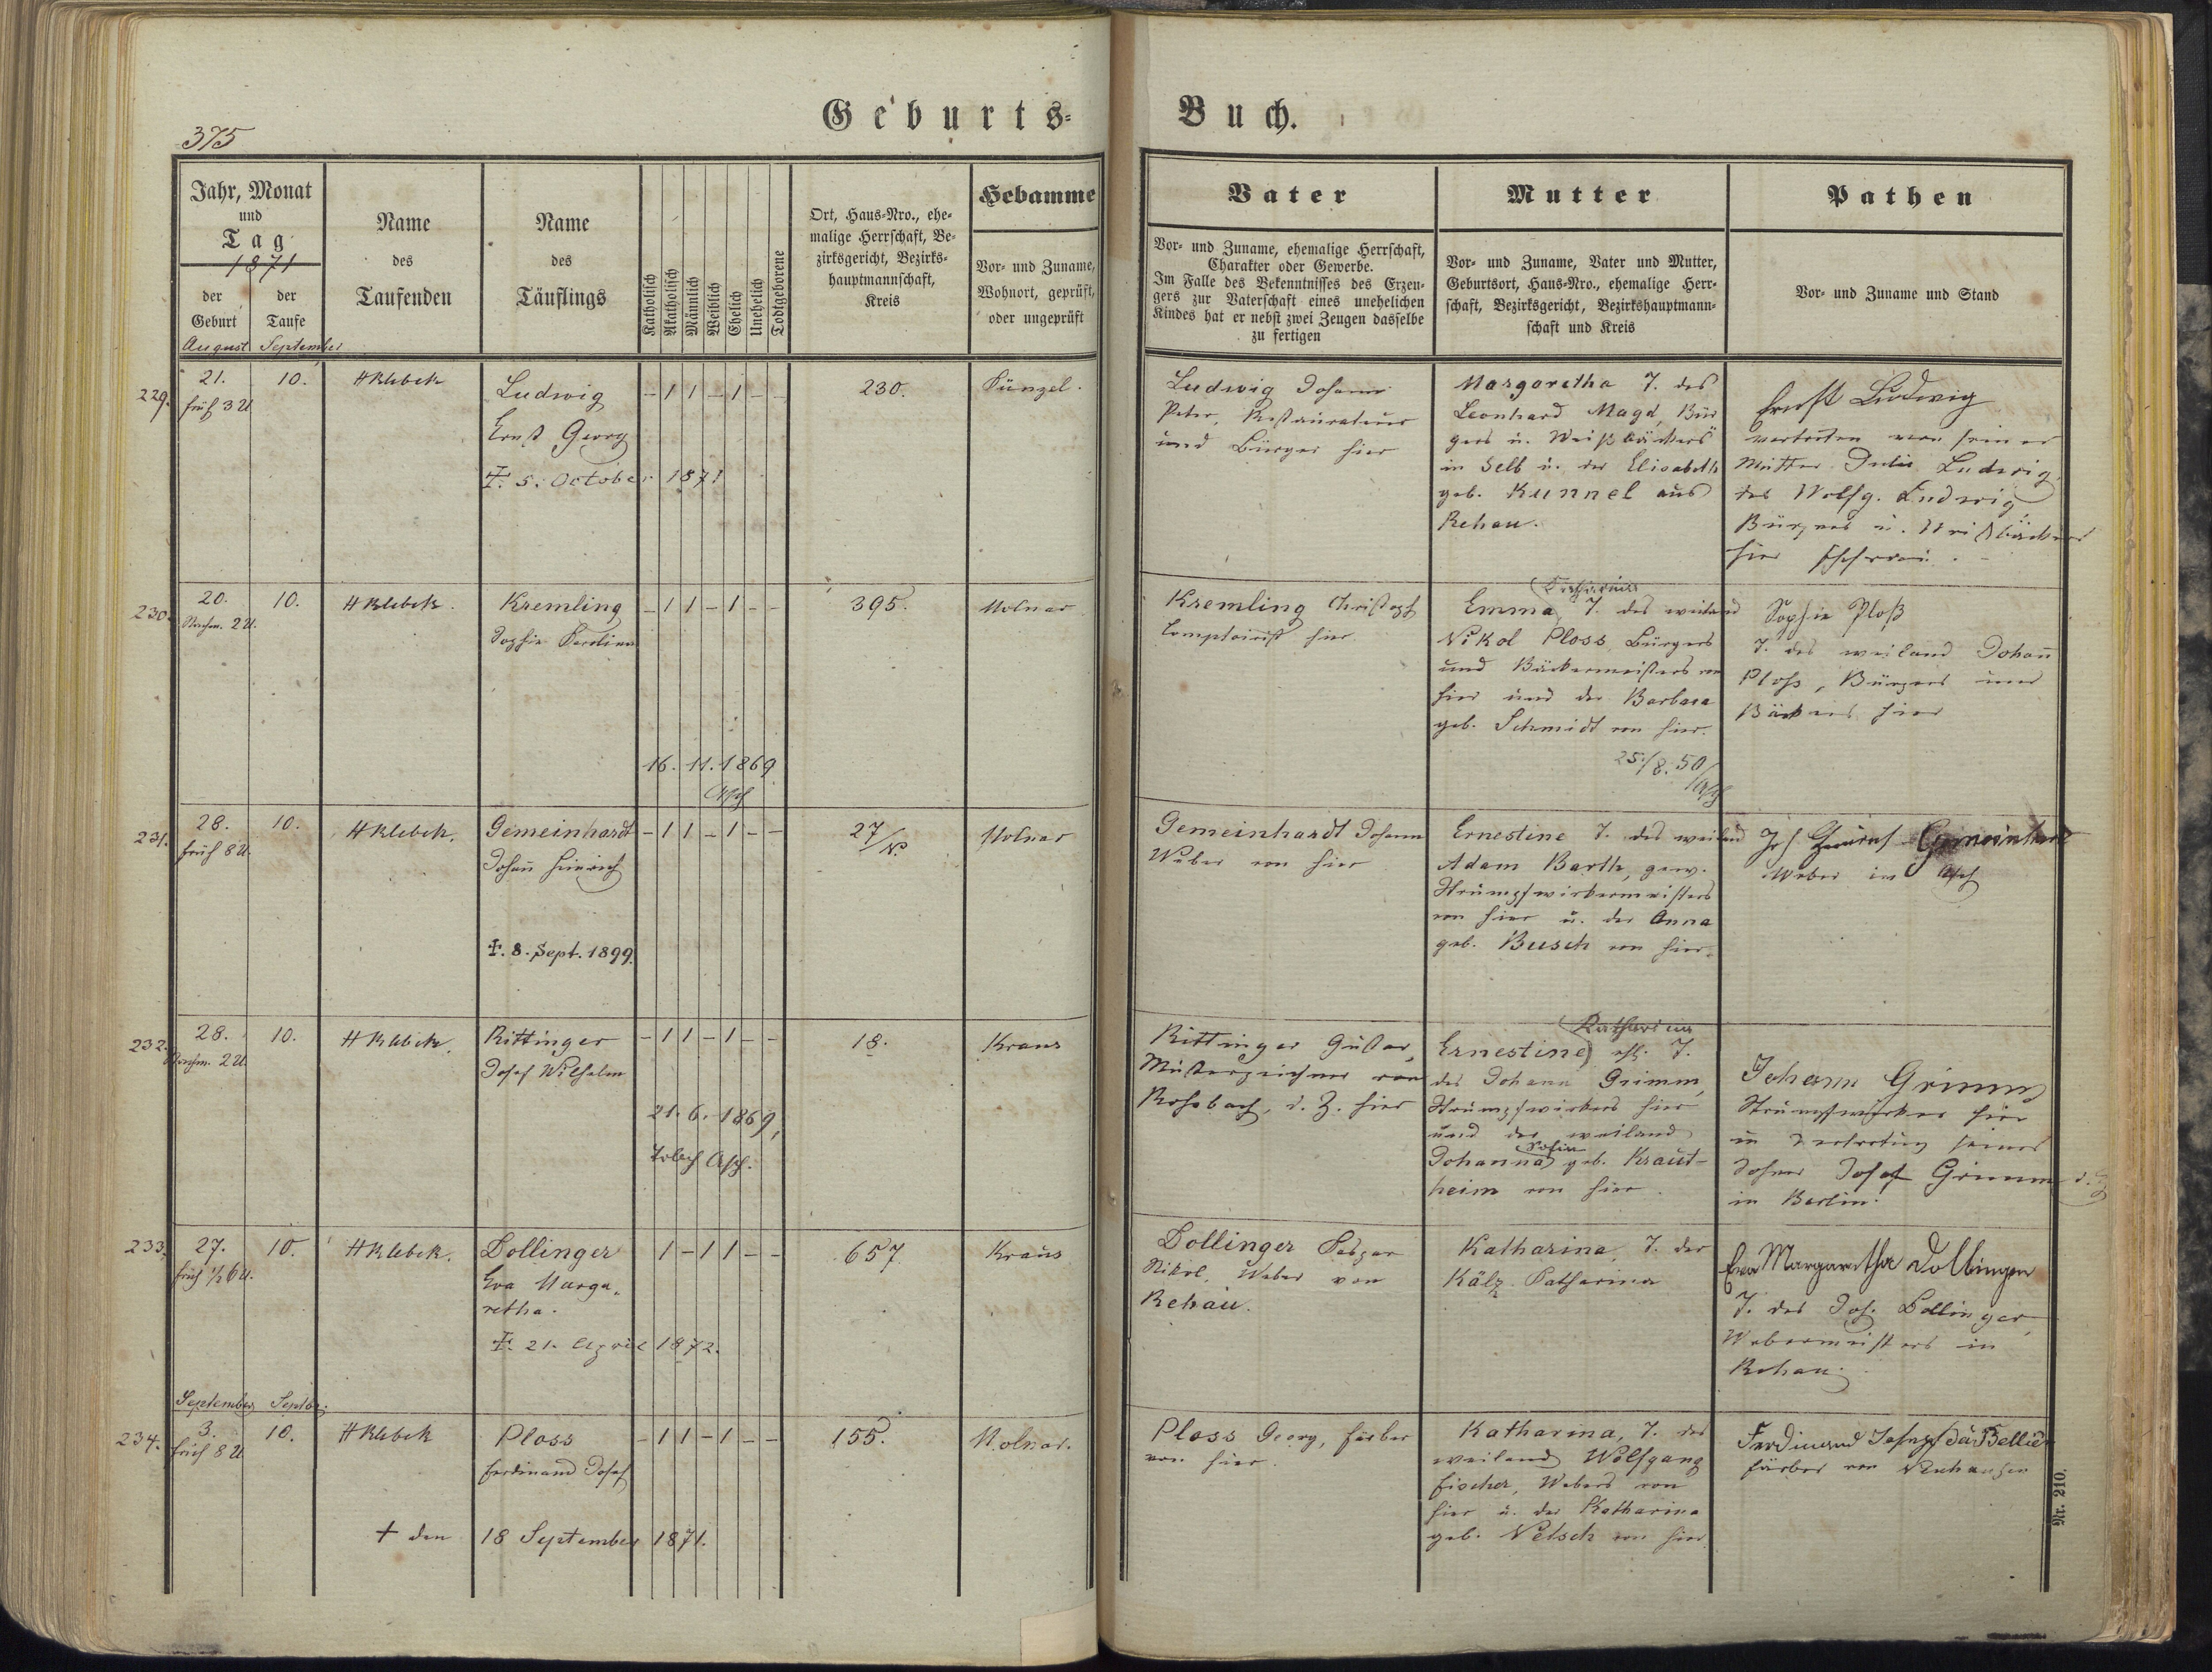 Geburts-
Buch.
375
Jahr, Monat
und
Tag
1871
der
Geburt
der
Taufe
August September
Name
des
Taufenden
Name
des
Täuflings
Katholisch
Akatholisch
Männlich
Weiblich
Ehelich
Unehelich
Todtgeborene
Ort, Haus-Nro., ehe-
malige Herrschaft, Be-
zirksgericht, Bezirks-
hauptmannschaft,
Kreis
Hebamme
Vor- und Zuname,
Wohnort, geprüft,
oder ungeprüft
Vater
Vor- und Zuname, ehemalige Herrschaft,
Charakter oder Gewerbe.
Im Falle des Bekenntnisses des Erzeu-
gers zur Vaterschaft eines unehelichen
Kindes hat er nebst zwei Zeugen dasselbe
zu fertigen
Mutter
Vor- und Zuname, Vater und Mutter,
Geburtsort, Haus-Nro., ehemalige Herr-
schaft, Bezirksgericht, Bezirkshauptmann-
schaft und Kreis
Pathen
Vor- und Zuname und Stand
229.
21.
früh 3 U
10.
HKlebek
Ludwig
Ernst Georg
†. 5. October 1871
– 1 1 – 1 – –
230.
Künzel.
Ludwig Johann
Peter, Restaurateur
und Bürger hier
Margaretha T. des
Leonhard Magd, Bür
gers u. Weißbäckers
in Selb u. der Elisabeth
geb. Kunnel aus
Rehau.
Ernst Ludwig
vertreten von seiner
Mutter Julie Ludwig,
des Wolfg. Ludwig,
Bürgers u. Weißbäckers
hier Ehefrau.
230.
20.
Nachm. 2 U.
10.
HKlebek.
Kremling
Sophie Karoline
– 1 1 – 1 – –
16. 11. 1869
Asch
395.
Molnar
Kremling Christoph
Comptoirist hier
Katharina
Emma, T. des weiland
Nikol Ploss, Bürgers
und Bäckermeisters von
hier und der Barbara
geb. Schmidt von hier.
25./8. 50
Asch
Sophie Ploß
T. des weiland Johann
Ploss, Bürgers und
Bäckers hier
231.
28.
früh 8 U.
10.
HKlebek.
Gemeinhardt
Johann Heinrich
†. 8. Sept. 1899.
– 1 1 – 1 – –
27/N.
Molnar
Gemeinhardt Johann
Weber von hier
Ernestine T. des weiland
Adam Barth, gew.
Strumpfwirkermeisters
von hier u. der Anna
geb. Busch von hier.
Joh Gemeinhardt
Weber in Asch
232.
28.
Nachm. 2 U.
10.
HKlebek.
Rittinger
Josef Wilhelm
– 1 1 – 1 – –
21. 6. 1869,
Asch.
18.
Kraus
Rittinger Gustav,
Musterzeichner von
Rossbach, d. Z. hier
Katharina
Ernestine ehl. T.
des Johann Grimm,
Strumpfwirkers hier
und der weiland
Sofie
Johanna geb. Kraut-
heim von hier.
Johann Grimm
Strumpfwirker hier
in Vertretung seines
Sohnes Josef Grimm d. Z.
in Berlin.
233.
27.
früh ½ 6 U.
10.
HKlebek.
Dollinger
Eva Marga-
retha.
†. 21. April 1872.
1 – 1 1 – –
657.
Kraus
Dollinger Kaspar
Nikol, Weber von
Rehau.
Katharina, T. der
Kälz Katharina
Eva Margaretha Dollinger
T. des Joh. Dollinger,
Webermeisters in
Rehau.
September Septbr.
234.
3.
früh 8 U.
10.
HKlebek
Ploss
Ferdinand Josef
† den 18 September 1871.
– 1 1 – 1 – –
155.
Molnar.
Ploss Georg, Färber
von hier.
Katharina, T. des
weiland Wolfgang
Fischer, Webers von
hier u. der Katharina
geb. Netsch von hier
Ferdinand Joseph
Färber von Neuhausen
Nr. 210.